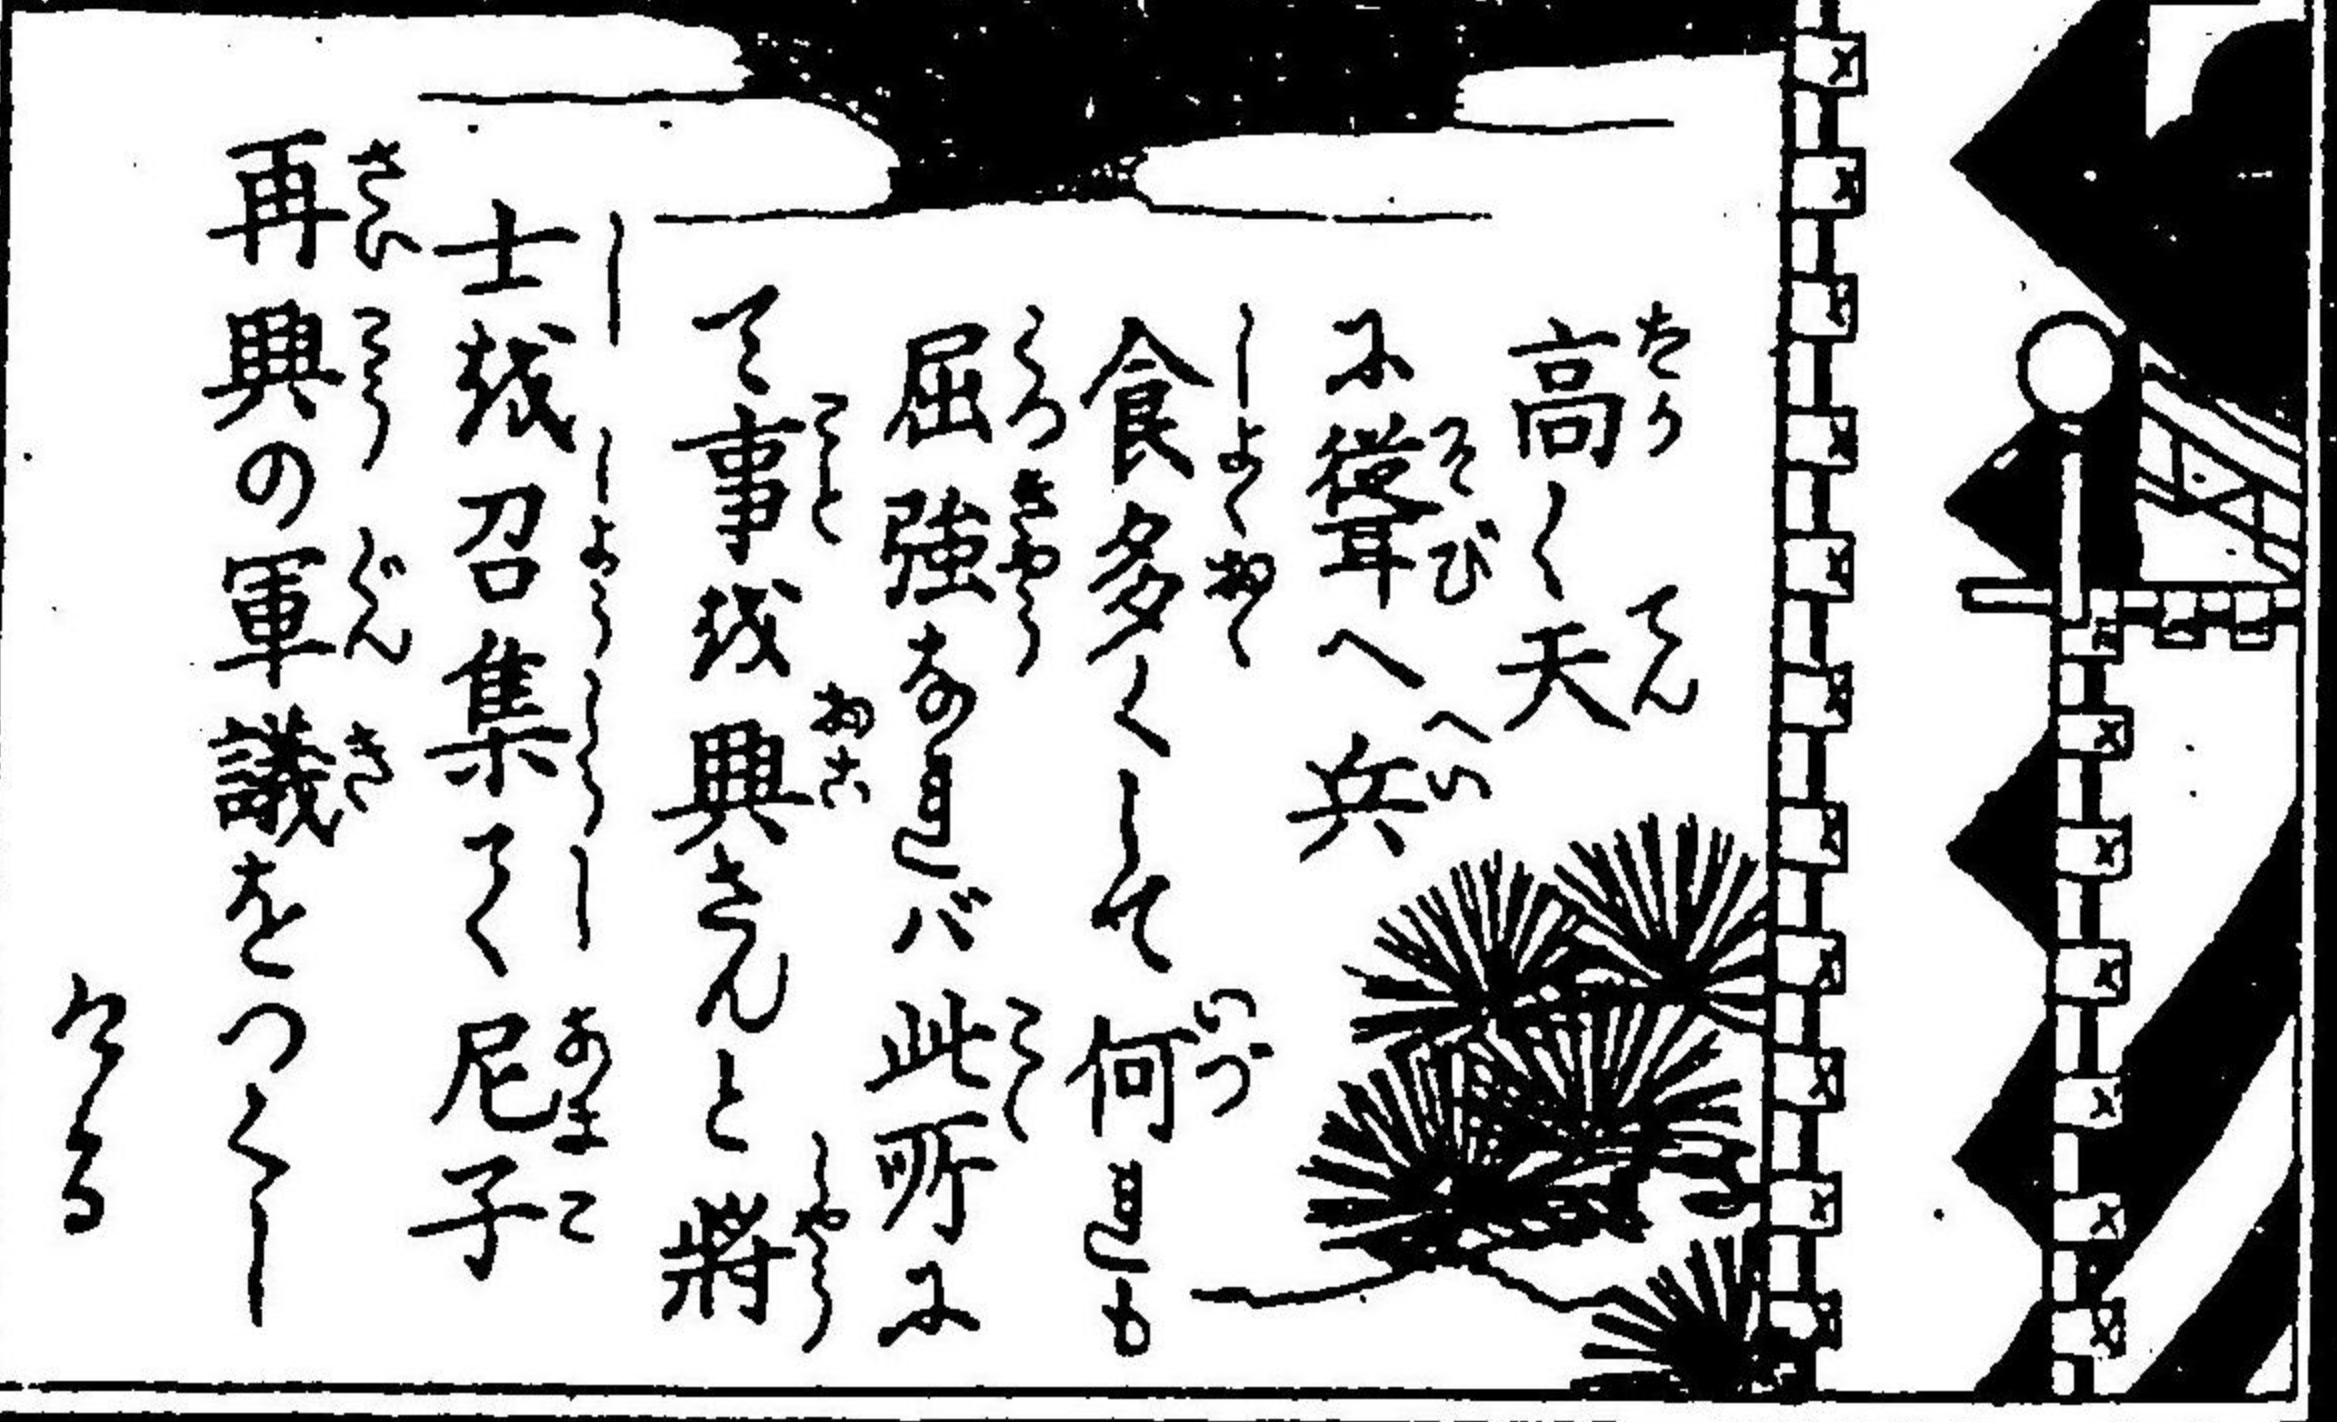 高く天
に聳へ兵
食多くして何れも
屈強なれバ此所に
て事を興さんと將
士を召集て尼子
再興の軍議をつくし
ける